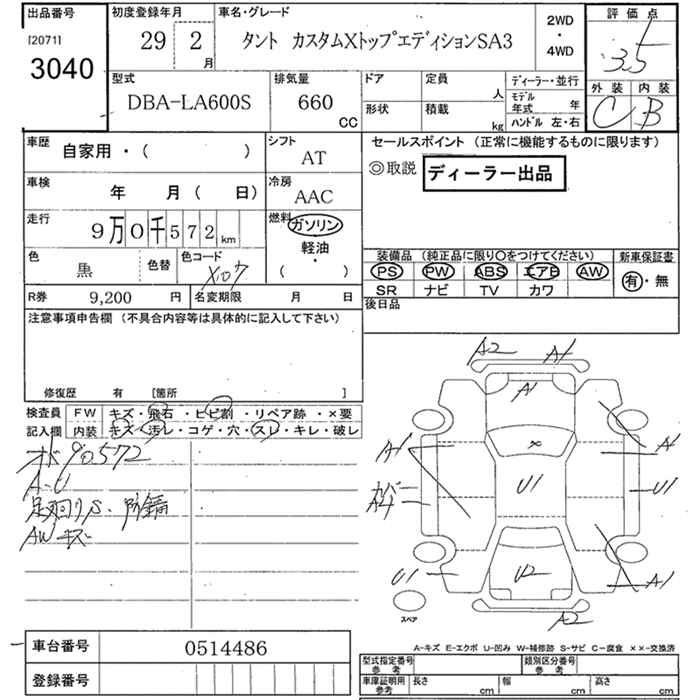 出品番号
[2071]
3040
初度登録年月
29 2 月
車名・グレード
タント カスタムXトップエディションSA3
2WD
・
4WD
評価点
3.5
外装 内装
C B
型式
DBA-LA600S
排気量
660 CC
ドア
定員 人
形状
積載 kg
ディーラー・並行
モデル年式 年
ハンドル 左・右
車歴
自家用・( )
シフト
AT
車検
年 月( 日)
冷房
AAC
走行
9万0千572km
燃料
ガソリン
軽油
・
( )
色
黒
色替
色コード
X07
R券 9,200 円
名変期限 月 日
セールスポイント (正常に機能するものに限ります)
◎取説 ディーラー出品
装備品 (純正品に限り○をつけてください)
PS PW ABS エアB AW
SR ナビ TV カワ
新車保証書
有・無
後日品
注意事項申告欄 (不具合内容等は具体的に記入して下さい)
修復歴 有 [箇所 ]
検査員記入欄
FW キズ・飛石・ヒビ割・リペア跡・×要
内装 キズ・汚レ・コゲ・穴・スレ・キレ・破レ
オド90572
A-U
足廻りS・所錆
AWキズ
A2 A1
A1
A1 × A1
カバーA4 U1 U1
U1 U2 A1
A2
スペア
A-キズ E-エクボ U-凹み W-補修跡 S-サビ C-腐食 ××-交換済
車台番号 0514486
登録番号
型式指定番号 参考
類別区分番号 参考
車庫証明用 参考
長さ cm 幅 cm 高さ cm